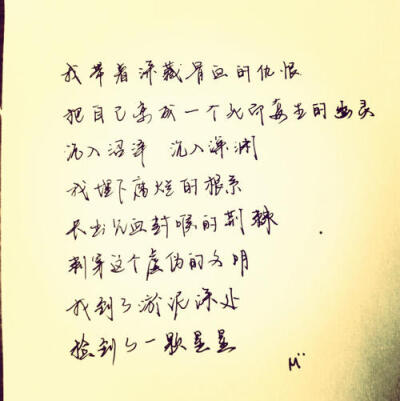 我带着深藏骨血的仇恨
把自己亲成一个无所寄生的幽灵
沉入沼泽 沉入深渊
我埋下腐烂的根系
长出见血封喉的荆棘
刺穿这个虚伪的文明
我到了淤泥深处
捡到了一颗星星
M